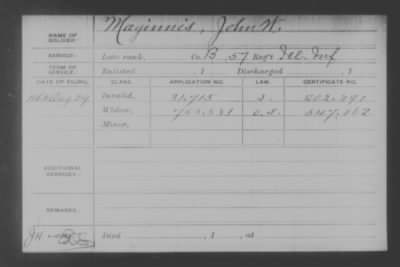 NAME OF SOLDIER: Maginnis, John W.
SERVICE: Late rank, Co. B, 5 Reg't Del. Inf
TERM OF SERVICE: Enlisted , 1 Discharged , 1
DATE OF FILING. CLASS. APPLICATION NO. LAW. CERTIFICATE NO.
1863 Aug 29 Invalid, 31.715
Widow, 753.531 547.162
Minor,
ADDITIONAL SERVICES:
REMARKS:
Died , 1 , at